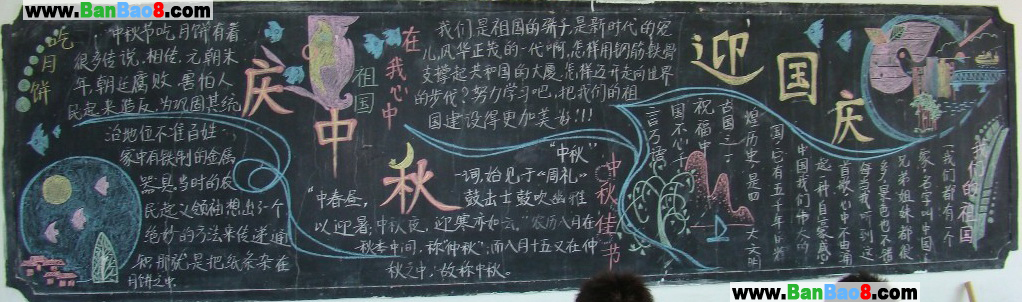 www.BanBao8.com
www.BanBao8.com
吃月饼
中秋节吃月饼有着
很多传说，相传，元朝末
年，朝廷腐败，害怕人
民起来造反，为巩固其统
治地位不准百姓
家中有铁制的金属
器具，当时的农
民起义领袖想出了个
绝妙的方法来传递通
知，那就是把纸条杂在
月饼之中。
庆中秋
祖国
在我心中
我们是祖国的骄子，是新时代的宠
儿，风华正茂的一代啊，怎样用钢筋铁骨
支撑起共和国的大厦，怎样迈开走向世界
的步伐？努力学习吧，把我们的祖
国建设得更加美好!!!
"中秋"
一词，始见于《周礼》
"中春昼，
鼓击士鼓吹幽雅
以迎暑；中秋夜，迎寒亦如云。"农历八月在
秋季中间，称"仲秋"；而八月十五又在仲
秋之中，故称中秋。
中秋佳节
迎国庆
我们的祖国
我们都有一个
家，名字叫中国，
兄弟姐妹都很
多，景色也不错
每当我听到这
首歌，心中不由涌
起一种自豪感，
中国，我们伟大的
国，它有五千年的
煌历史，是四大文明
古国之一，
祝福中
国不心千
言万语
www.BanBao8.com